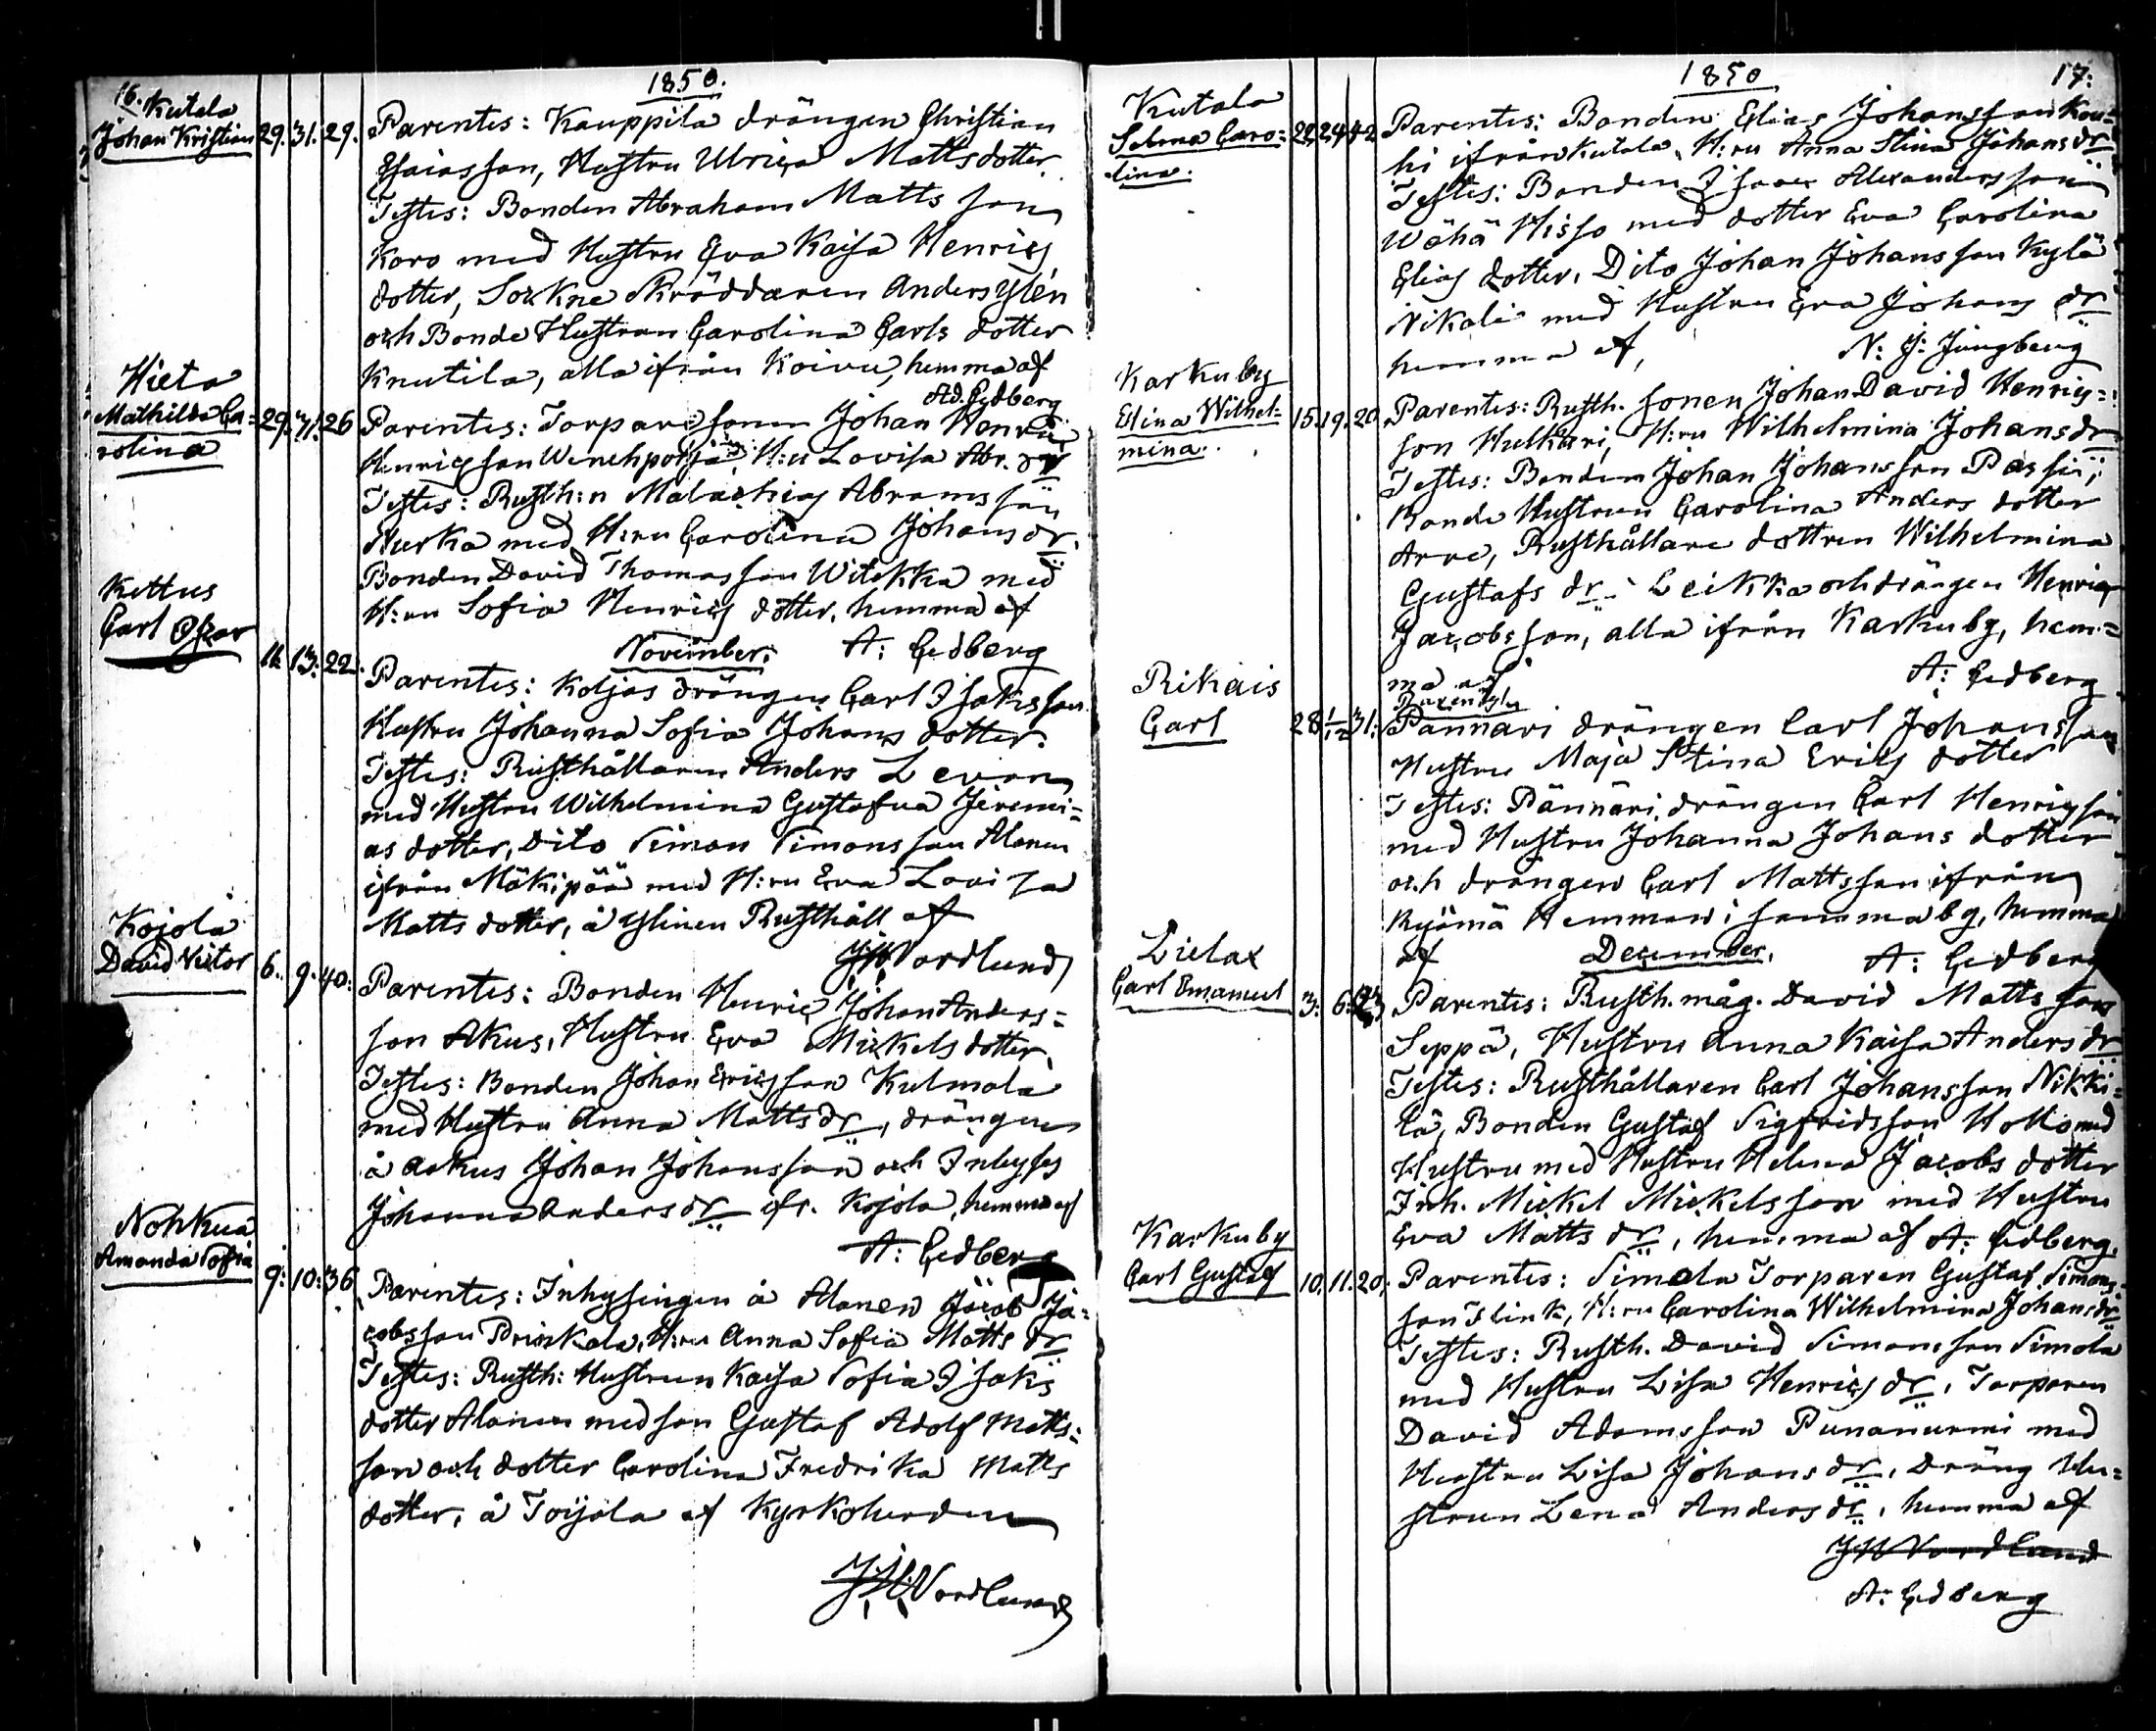 16. 1850.
Kutala
Johan Kristian 29. 31. 29. Parentes: Kauppila drängen Christian
Esaiasson, Hustru Ulrica Mattsdotter.
Testes: Bonden Abraham Matts son
Koro med Hustru Eva Kaisa Henrics
dotter, Sockne Skräddaren Anders Ylén
och Bonde Hustrun Carolina Carls dotter
Knutila, alla ifrån Koivu, hemma af
Ad. Eedberg
Hieta
Mathilda Ca= 29. 31. 26 Parentes: Torpare sonen Johan Henric
rolina
Henricsson Wenehpohja, H:u Lovisa Abr. dr
Testes: Rusth:n Malachias Abramsson
Hurka med H:ru Carolina Johans dr.
Bonden David Thomasson Witikka med
H:ru Sofia Henrics dotter, hemma af
November. A: Eedberg
Kettus
Carl Oscar 11. 13. 22. Parentes: Koljas drängen Carl Isaksson
Hustru Johanna Sofia Johans dotter.
Testes: Rusthållaren Anders Leven
med Hustru Wilhelmina Gustafva Jeremi=
as dotter, Dito Simon Simonsson Alanen
ifrån Mäkipää med H:ru Eva Lovisa
Matts dotter, å Ylinen Rusthåll af
J H Nordlund
Kojola
David Victor 6. 9. 40. Parentes: Bonden Henric Johan Anders=
son Akus, Hustru Eva Mickels dotter.
Testes: Bonden Johan Ericsson Kulmala
med Hustru Anna Matts dr, drängen
å Aakus Johan Johansson och Inhyses
Johanna Anders dr ifr. Kojola, hemma af
A: Eedberg
Nohkua
Amanda Sofia 9. 10. 36 Parentes: Inhysingen å Alanen Jacob Ja=
cobsson Prinkala, H:ru Anna Sofia Matts dr
Testes: Rusth: Hustrun Kaisa Sofia Isaks
dotter Alanen med son Gustaf Adolf Matts=
son och dotter Carolina Fredrika Matts
dotter, å Toijola af Kyrkoherden
J H Nordlund
1850 17.
Kutala
Selma Caro= 22. 24. 42 Parentes: Bonden Elias Johansson Kou=
lina.
hi ifrån Kutala, H:ru Anna Stina Johans dr
Testes: Bonden Isaac Alexandersson
Wähä Hisso med dotter Eva Carolina
Elias dotter, Dito Johan Johansson Kylä
Nikali med Hustru Eva Johans dr
hemma af, N: J: Jungberg
Karkuby
Elina Wilhel= 15. 19. 20. Parentes: Rusth. sonen Johan David Henrics=
mina.
son Hulkari, H:ru Wilhelmina Johans dr
Testes: Bonden Johan Johansson Passi,
Bonde Hustrun Carolina Anders dotter
Arve, Rusthållare dottren Wilhelmina
Gustafs dr Leikka och drängen Henric
Jacobsson, alla ifrån Karkuby, hem=
ma af A: Eedberg
Rikais
Carl 28. 1/12 31. Pannari drängen Carl Johansson
Hustru Maja Stina Erics dotter
Testes: Pännäri drängen Carl Henricsson
med Hustru Johanna Johans dotter
och drängen Carl Mattsson ifrån
Kyömä Hemman i samma by, hemma
af December. A: Eedberg
Lielax
Carl Emanuel 3. 6. Parentes: Rusth. måg. David Matts son
Seppä, Hustru Anna Kaisa Anders dr
Testes: Rusthållaren Carl Johansson Nikki=
lä, Bonden Gustaf Sigfridsson Hollo med
Hustru med Hustru Helena Jacobs dotter
Inh. Mickel Mickelsson med Hustru
Eva Matts dr, hemma af A: Eedberg.
Karkuby
Carl Gustaf 10. 11. 20. Parentes: Simola Torparen Gustaf Simons=
son Flink, H:ru Carolina Wilhelmina Johans dr
Testes: Rusth. David Simonsson Simola
med Hustru Lisa Henrics dr, Torparen
David Adamsson Punanurmi med
Hustru Lisa Johans dr, Dräng Hu=
strun Lena Anders dr, hemma af
J H Nordlund
A: Eedberg